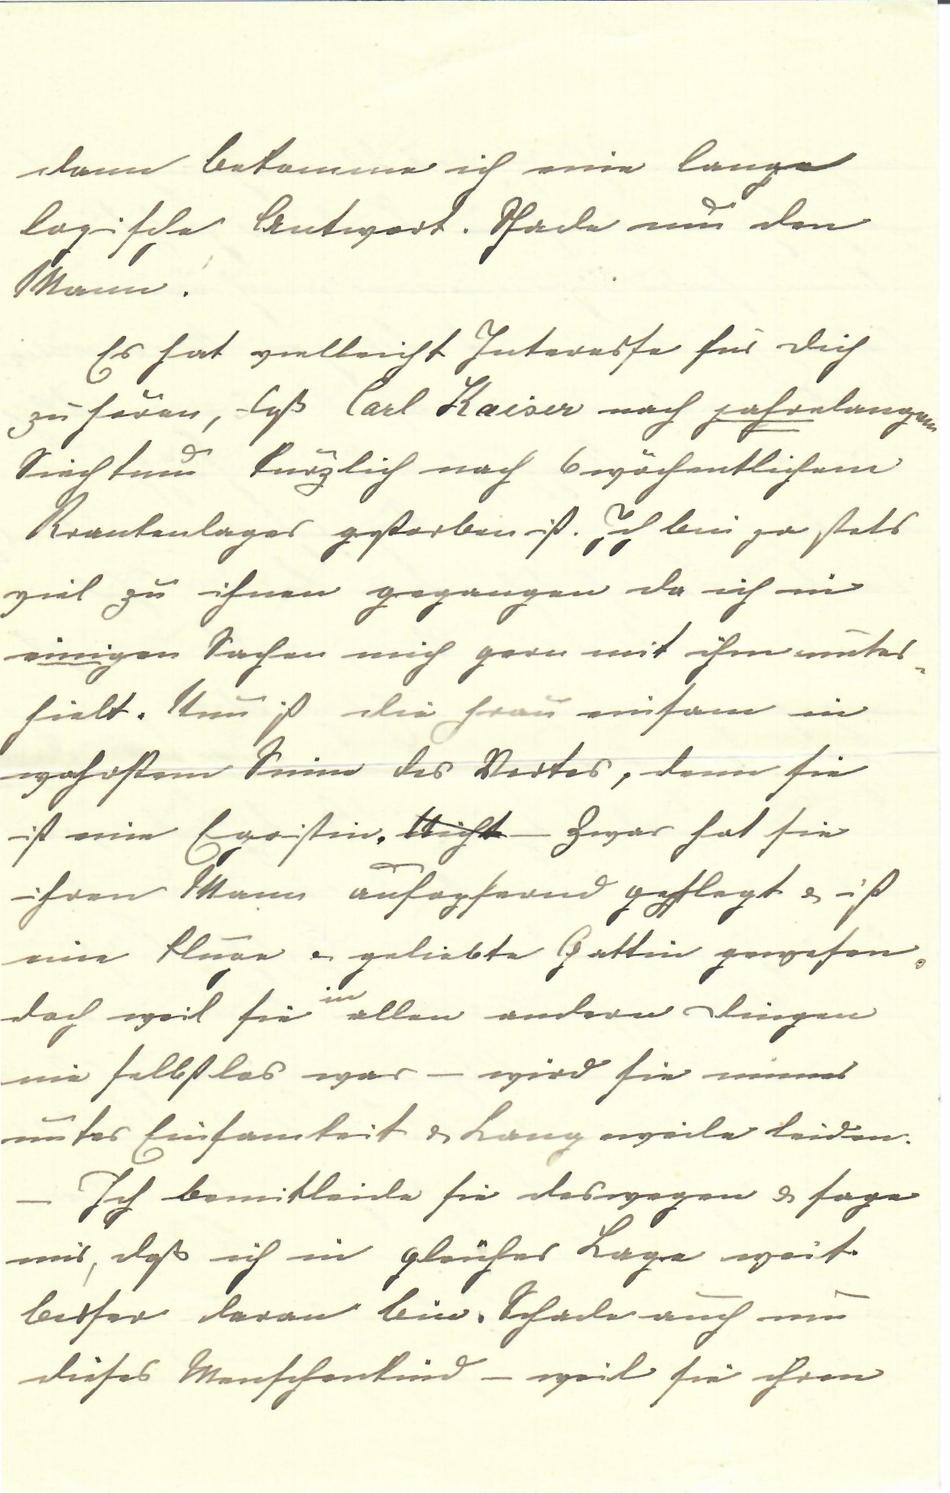 dann bekomme ich eine lange
logische Antwort. Schade um den
Mann.
Es hat vielleicht Interesse für Dich
zu hören, daß Carl Kaiser nach jahrelangem
Siechtum kürzlich nach 6 wöchentlichem
Krankenlager gestorben ist. Ich bin ja stets
viel zu ihnen gegangen da ich in
einigen Sachen mich gern mit ihm unter-
hielt. Nun ist die Frau einsam in
wahrstem Sinne des Wortes, denn sie
ist eine Egoistin. Nicht – Zwar hat sie
ihren Mann aufopfernd gepflegt & ist
eine kluge & geliebte Gattin gewesen.
doch weil sie in allen andern Dingen
nie selbstlos war – wird sie immer
unter Einsamkeit & Langeweile leiden.
– Ich bemitleide sie deswegen & sage
mir, daß ich in gleicher Lage weit
besser daran bin. Schade auch um
dieses Menschenkind – weil sie ihren